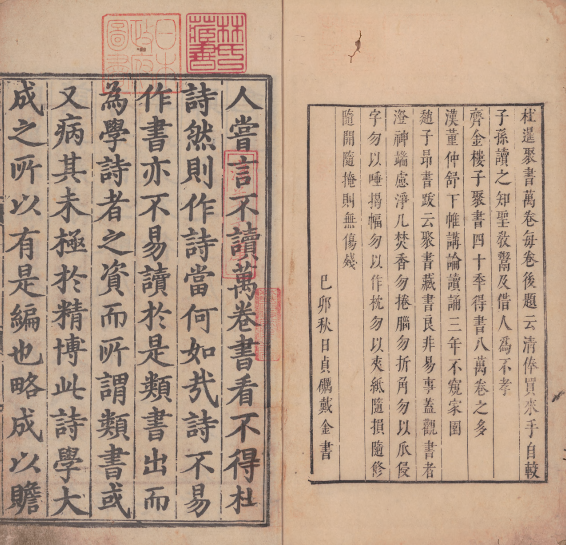 杜暹聚書萬卷每卷後題云清俸買來手自較
子孫讀之知聖教鬻及借人爲不孝
齊金樓子聚書四十季得書八萬卷之多
漢董仲舒下帷講論讀誦三年不窺家園
趙子昂書跋云聚書藏書良非易事蓋觀書者
澄神端慮淨几焚香勿捲腦勿折角勿以爪侵
字勿以唾揭幅勿以作枕勿以夾紙隨損隨修
隨開隨掩則無傷殘
巳卯秋日貞礪戴金書
林氏
藏書
日本
政府
圖書
人嘗言不讀萬卷書看不得杜
詩然則作詩當何如㢤詩不易
作書亦不易讀於是類書出而
為學詩者之資而所謂類書或
又病其未極於精博此詩學大
成之所以有是編也略成以贍